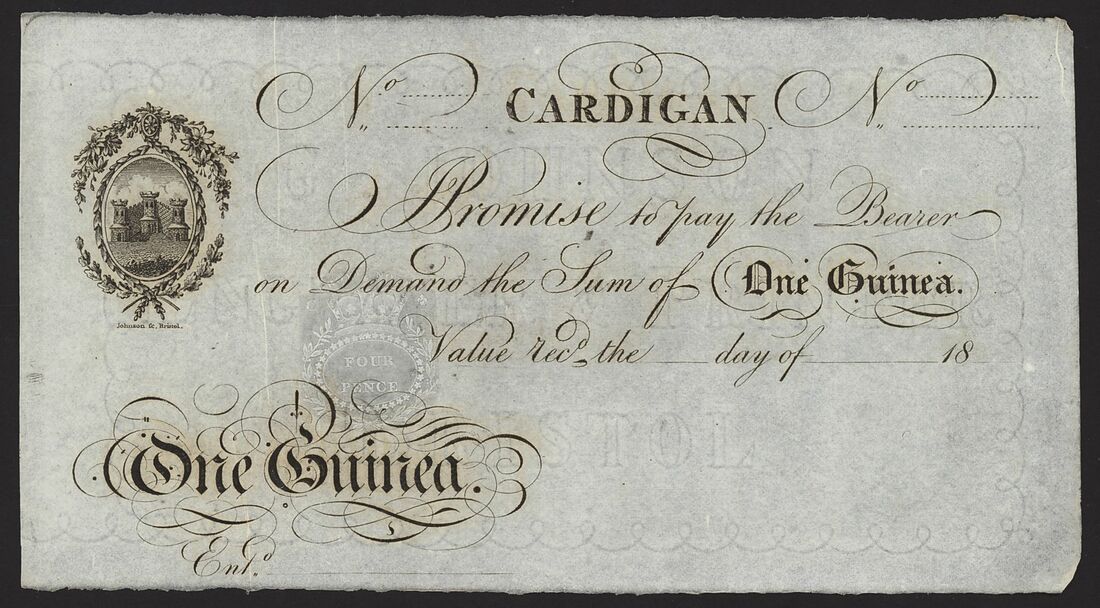 No CARDIGAN No
I Promise to pay the Bearer
on Demand the Sum of One Guinea.
Value recd. the day of 18
Johnson Sc, Bristol.
FOUR
PENCE
One Guinea.
Entd.